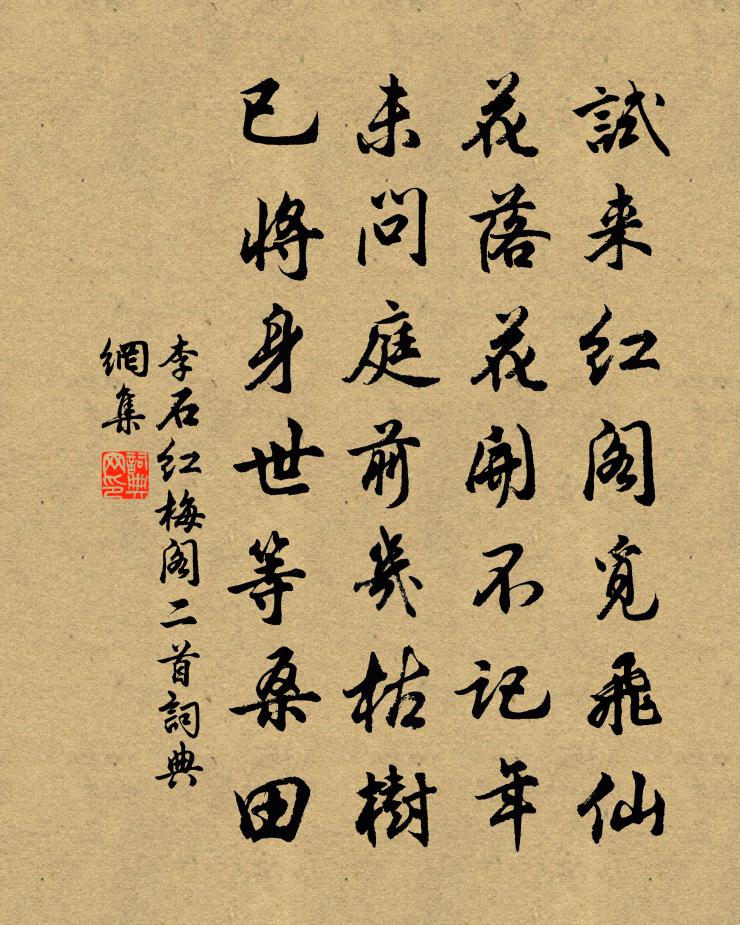 試来紅阁覓飛仙
花落花開不记年
未問庭前幾枯樹
已將身世等桑田
李石红梅阁二首詞典
網集
詞典
网印